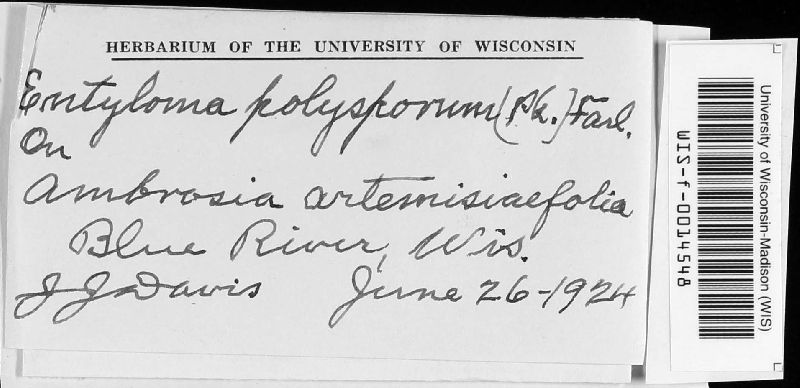 HERBARIUM OF THE UNIVERSITY OF WISCONSIN
Entyloma polysporum (Pk.) Farl.
On
Ambrosia artemisiaefolia
Blue River, Wis.
J J Davis June 26-1924
University of Wisconsin-Madison (WIS)
WIS-f-0014548